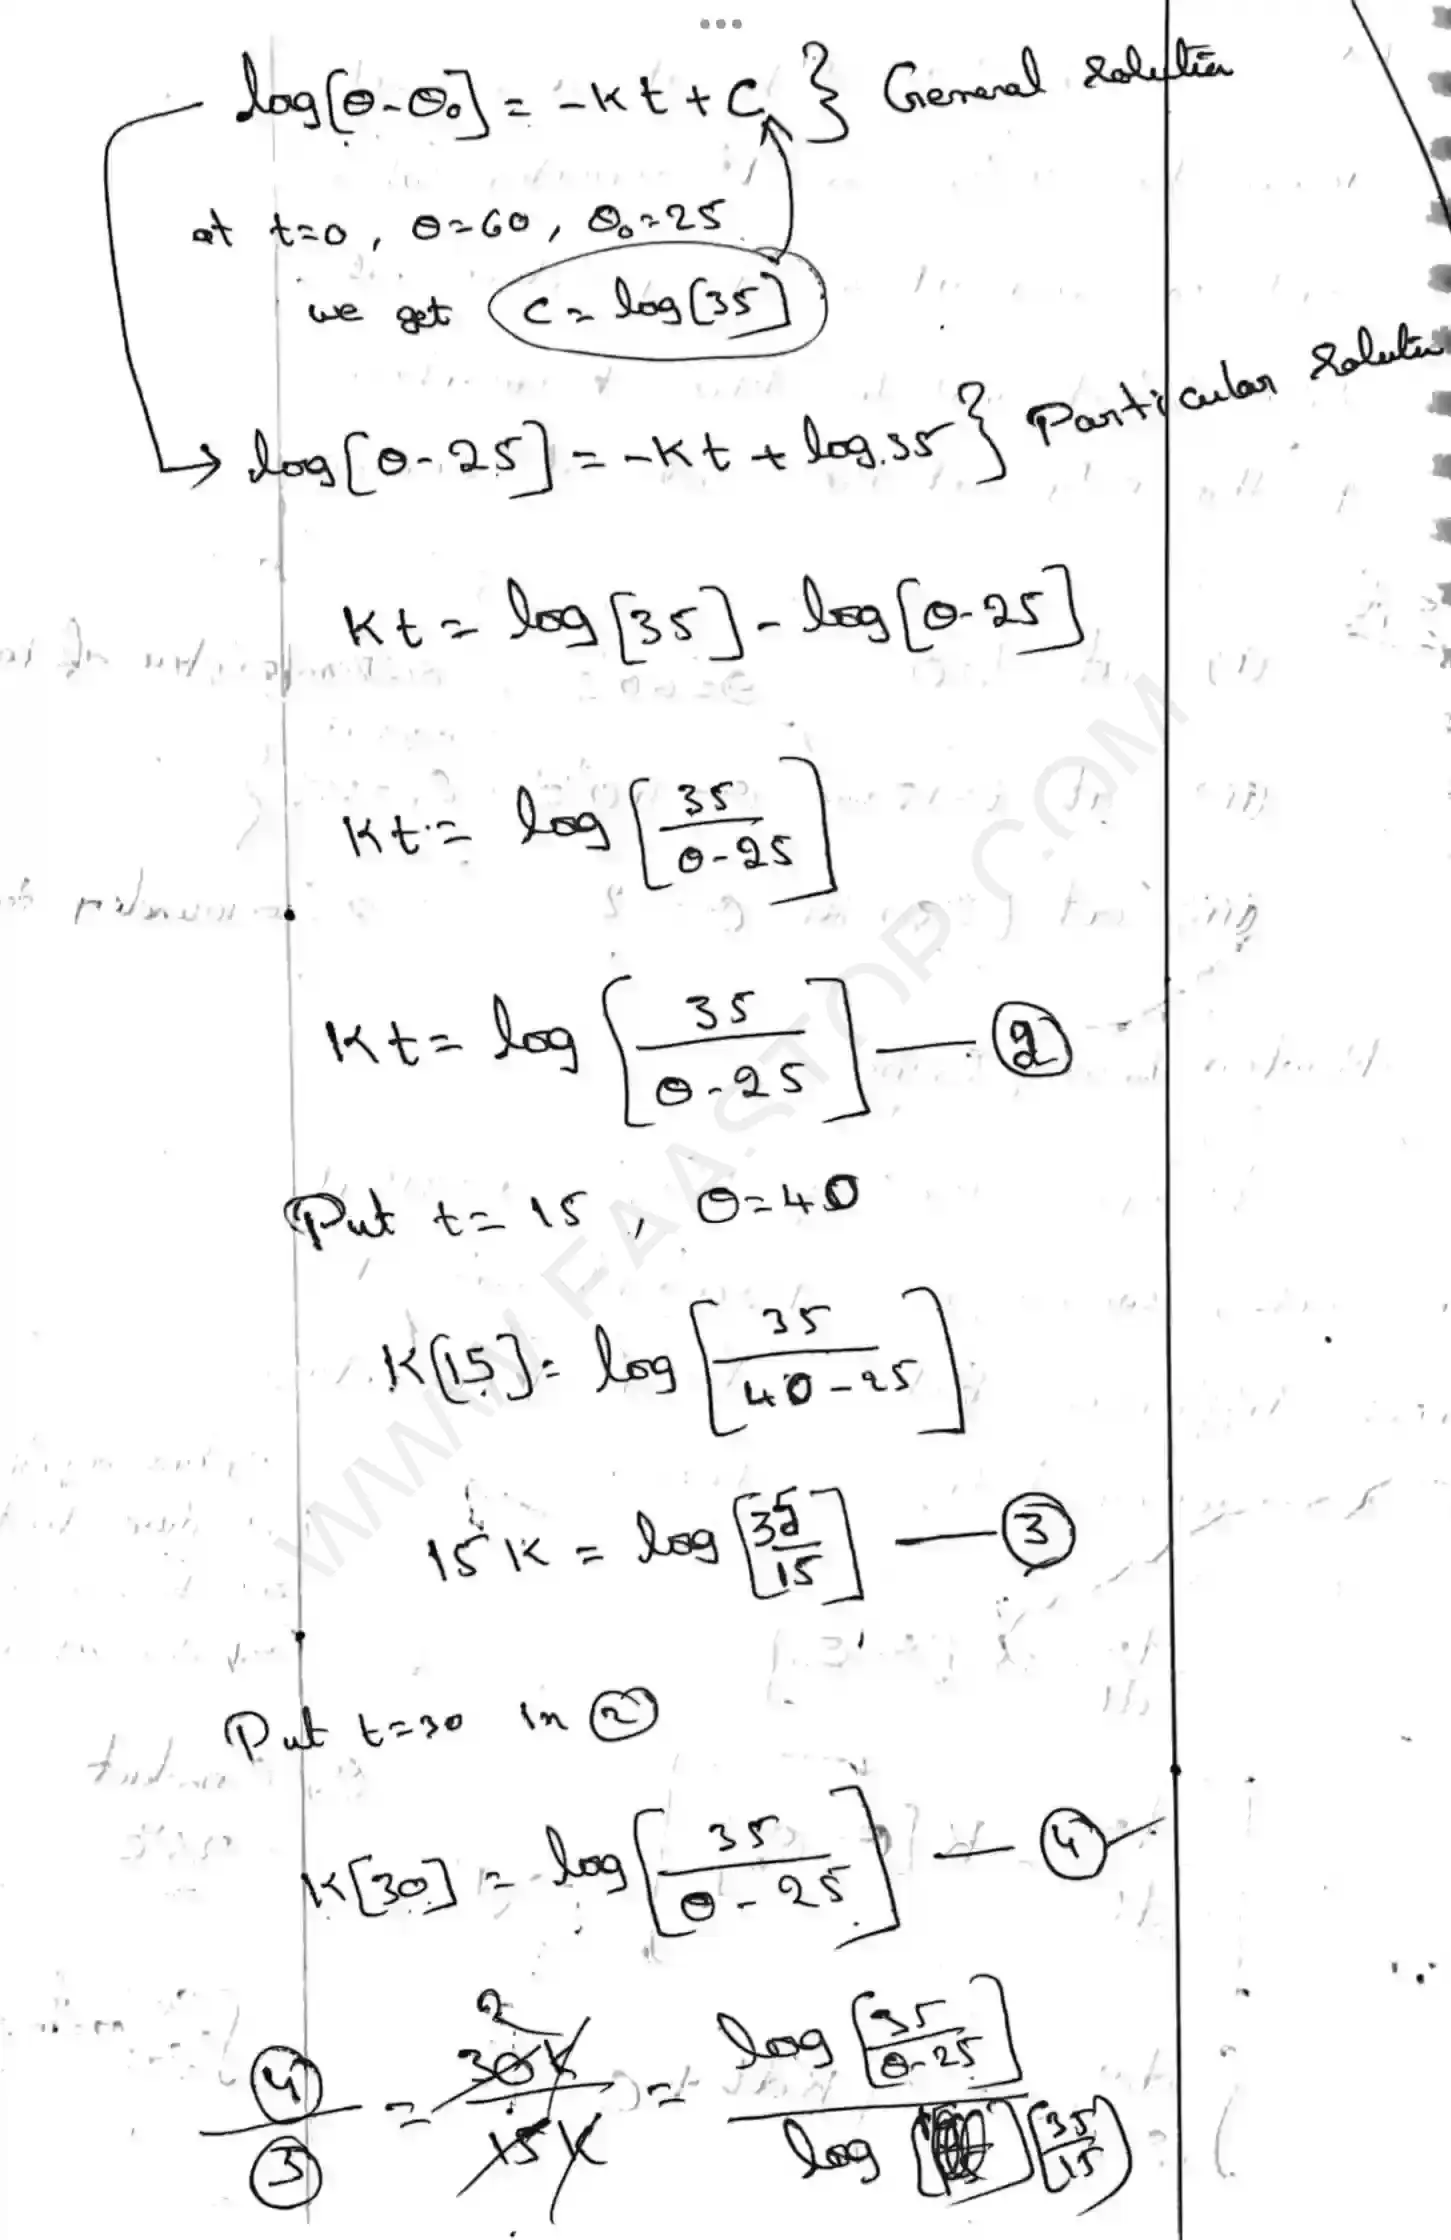 log[θ-θ₀] = -Kt + C } General Solution
at t=0, θ=60, θ₀=25
we get C = log[35]
log[θ-25] = -Kt + log.35 } Particular Solutin
Kt = log[35] - log[θ-25]
Kt = log[35/(θ-25)]
Kt = log[35/(θ-25)] — ②
Put t= 15, θ=40
K[15] = log[35/(40-25)]
15K = log[35/15] — ③
Put t=30 in ②
K[30] = log[35/(θ-25)] — ④
④/③ = 2 30K/15K = log[35/(θ-25)]/log[35/15]
WWW.FAASTOP.COM